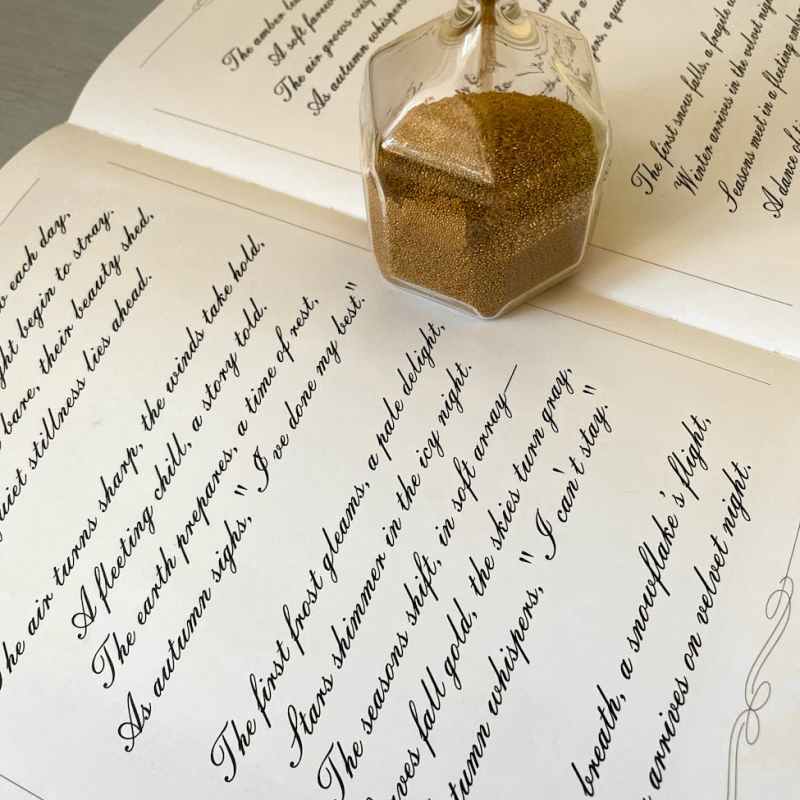 The amber
A soft
The air grows
As autumn whispers
for a
The first snow falls, a fragile
Winter arrives in the velvet
Seasons meet in a fleeting
A dance of
each day,
begin to stray.
bare, their beauty shed,
stillness lies ahead.
The air turns sharp, the winds take hold,
A fleeting chill, a story told.
The earth prepares, a time of rest,
As autumn sighs, "I've done my best."
The first frost gleams, a pale delight,
Stars shimmer in the icy night.
The seasons shift, in soft array—
fall gold, the skies turn gray,
whispers, "I can't stay."
breath, a snowflake's flight,
arrives on velvet night.